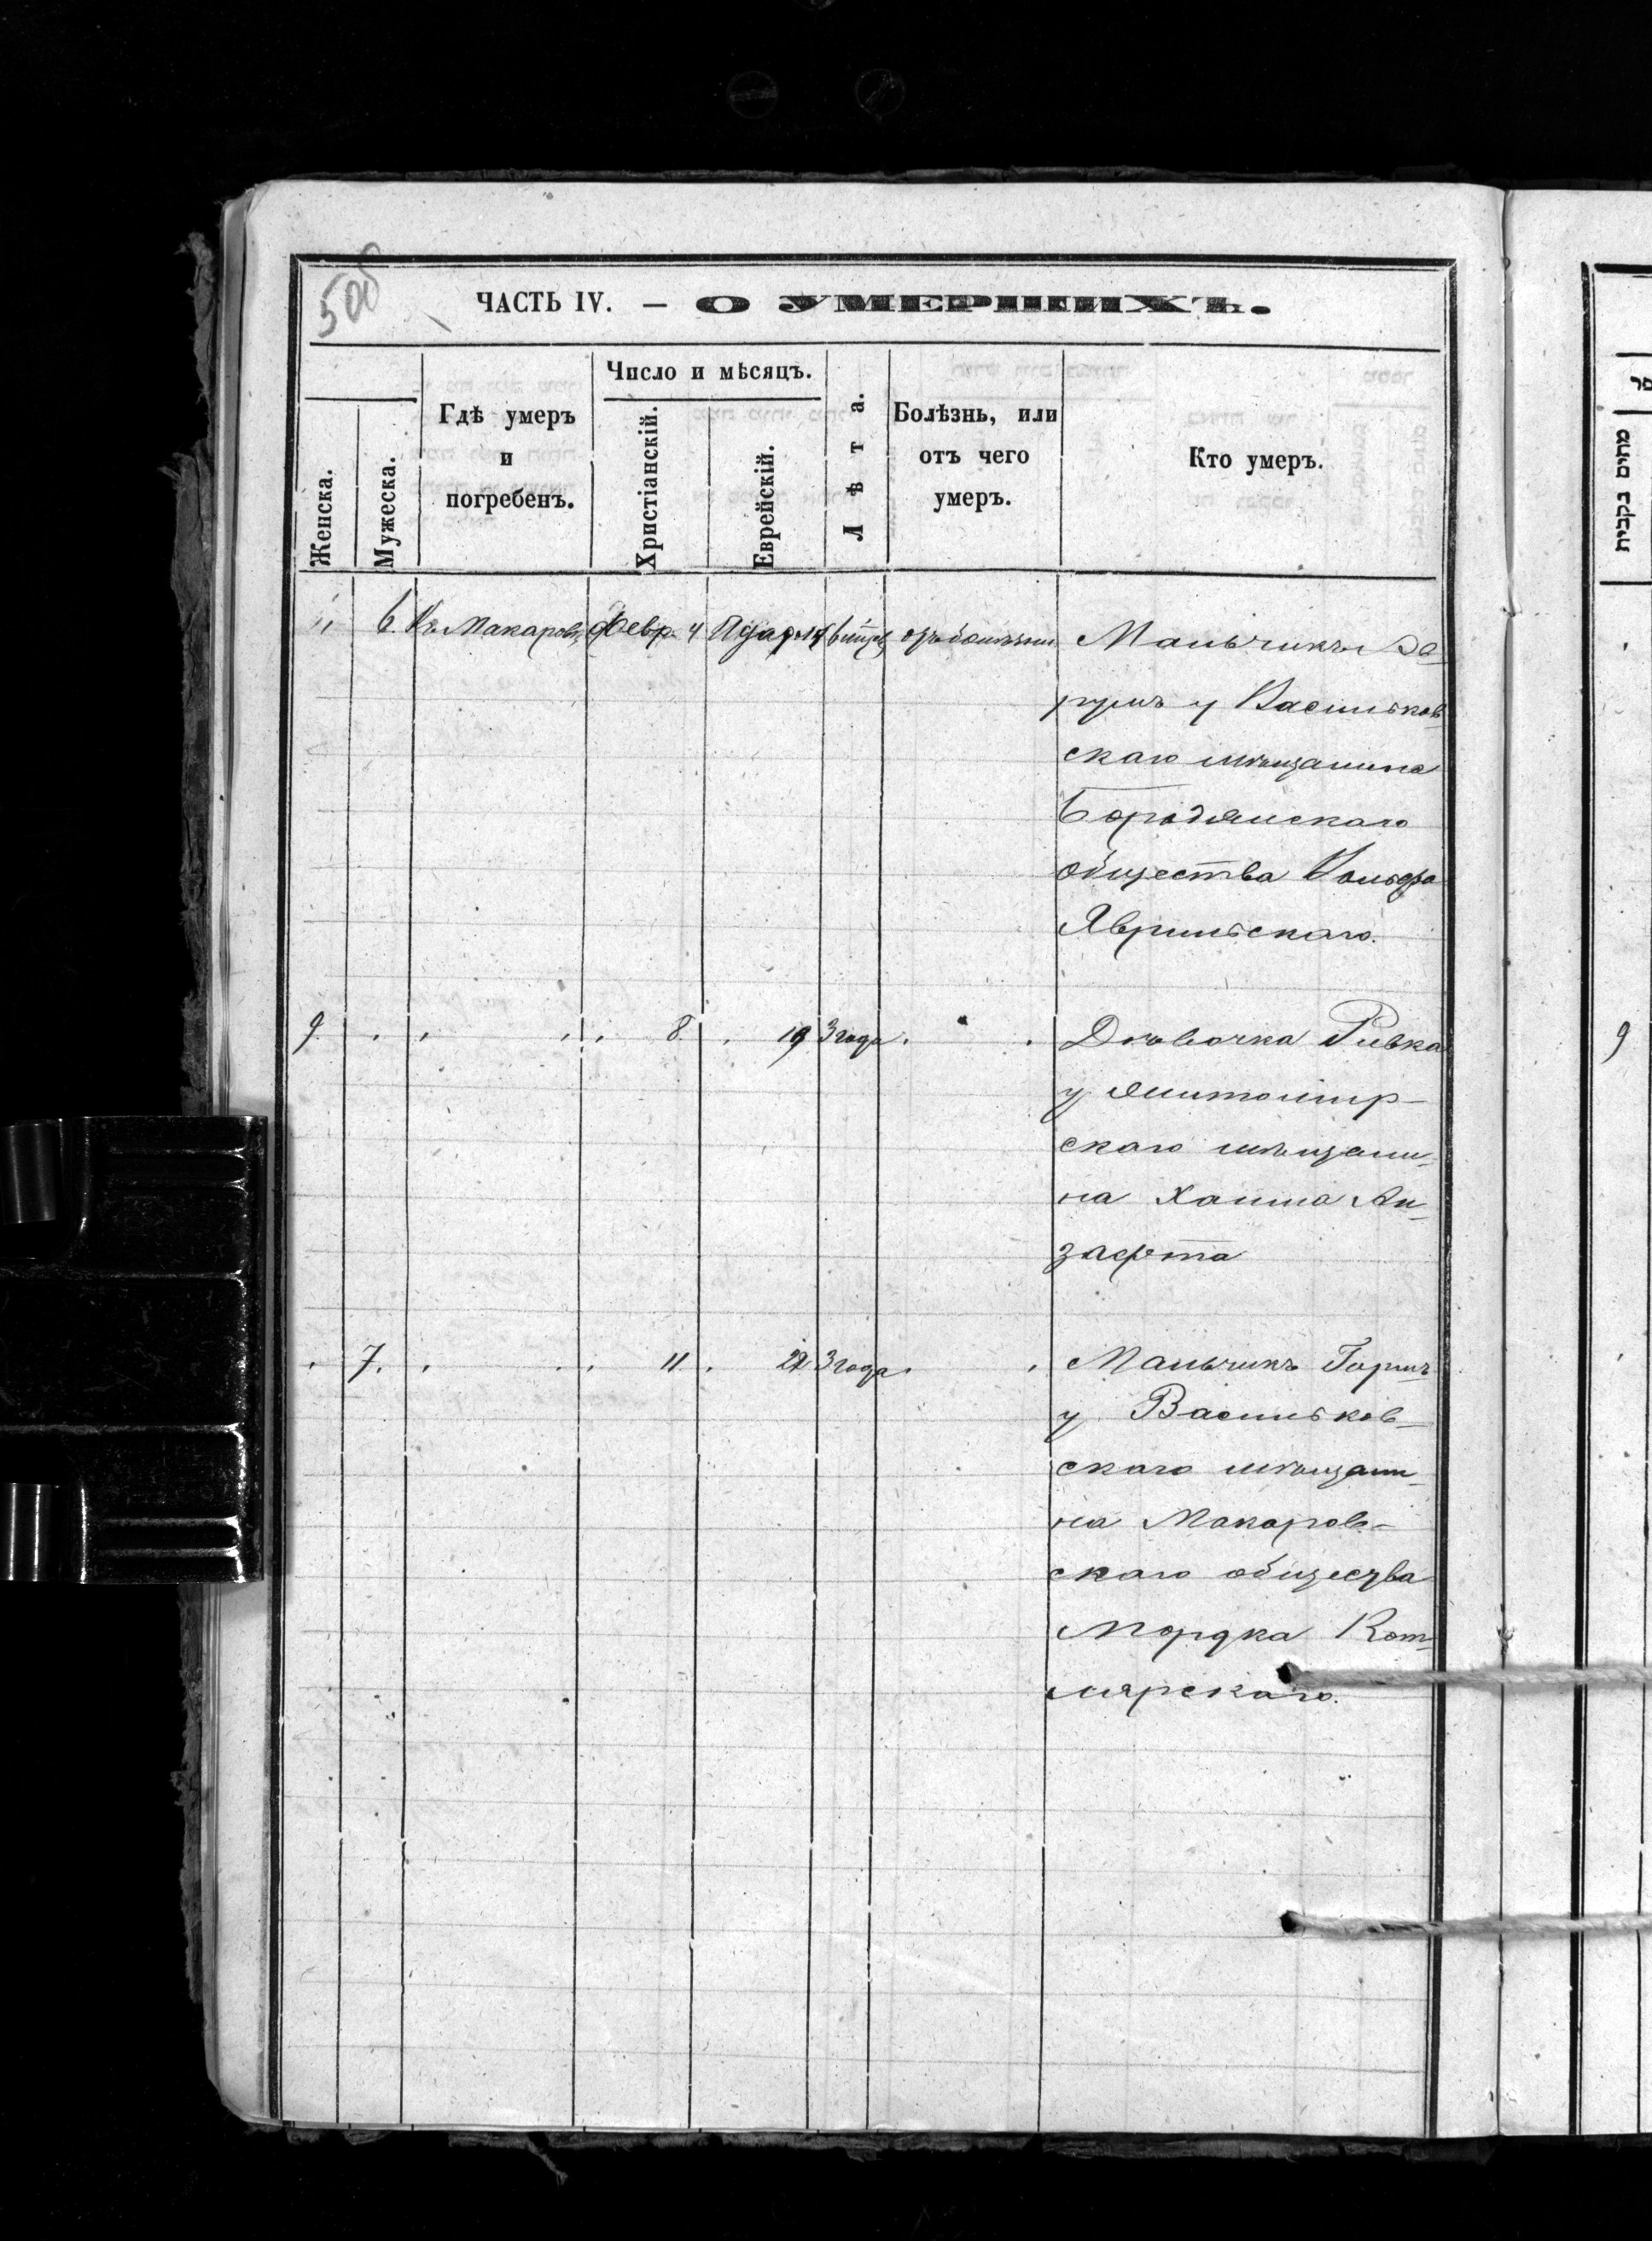 500
ЧАСТЬ IV. — О УМЕРШИХЪ.
Женска.
Мужеска.
Гдѣ умеръ
и
погребенъ.
Число и мѣсяцъ.
Христіанскій.
Еврейскій.
Лѣта.
Болѣзнь, или
отъ чего
умеръ.
Кто умеръ.
" 6. Макаровѣ Февр. 4 15 Мальчикъ
у Васильков-
скаго мѣщанина
Бородянскаго
общества Вольфа
9. 8. 19 3 года Дѣвочка Ривка
у Житомир-
скаго мѣщани-
на Хаима Ли-
зафта
7. 11. 22 3 года Мальчикъ Гершъ
у Васильков-
скаго мѣщани-
на Макаров-
скаго общества
Мордка Кот-
лярскаго.
מתים נקבות
9